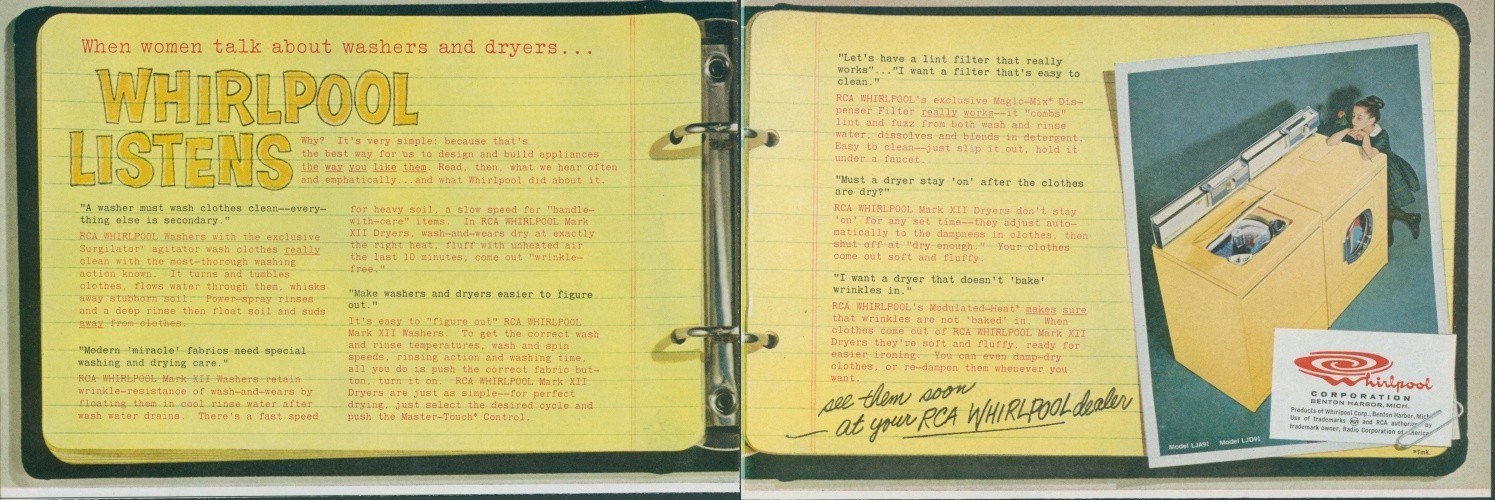 When women talk about washers and dryers...
WHIRLPOOL
LISTENS
Why? It's very simple: because that's
the best way for us to design and build appliances
the way you like them. Read, then, what we hear often
and emphatically...and what Whirlpool did about it.
"A washer must wash clothes clean--every-
thing else is secondary."
RCA WHIRLPOOL Washers with the exclusive
Surgilator® agitator wash clothes really
clean with the most-thorough washing
action known. It turns and tumbles
clothes, flows water through them, whisks
away stubborn soil. Power-spray rinses
and a deep rinse then float soil and suds
away from clothes.
"Modern 'miracle' fabrics need special
washing and drying care."
RCA WHIRLPOOL Mark XII Washers retain
wrinkle-resistance of wash-and-wears by
floating them in cool rinse water after
wash water drains. There's a fast speed
for heavy soil, a slow speed for "handle-
with-care" items. In RCA WHIRLPOOL Mark
XII Dryers, wash-and-wears dry at exactly
the right heat, fluff with unheated air
the last 10 minutes, come out "wrinkle-
free."
"Make washers and dryers easier to figure
out."
It's easy to "figure out" RCA WHIRLPOOL
Mark XII Washers. To get the correct wash
and rinse temperatures, wash and spin
speeds, rinsing action and washing time,
all you do is push the correct fabric but-
ton, turn it on. RCA WHIRLPOOL Mark XII
Dryers are just as simple--for perfect
drying, just select the desired cycle and
push the Master-Touch* Control.
"Let's have a lint filter that really
works"..."I want a filter that's easy to
clean."
RCA WHIRLPOOL's exclusive Magic-Mix* Dis-
penser Filter really works--it "combs"
lint and fuzz from both wash and rinse
water, dissolves and blends in detergent.
Easy to clean--just slip it out, hold it
under a faucet.
"Must a dryer stay 'on' after the clothes
are dry?"
RCA WHIRLPOOL Mark XII Dryers don't stay
'on' for any set time--they adjust auto-
matically to the dampness in clothes, then
shut off at "dry enough." Your clothes
come out soft and fluffy.
"I want a dryer that doesn't 'bake'
wrinkles in."
RCA WHIRLPOOL's Modulated-Heat* makes sure
that wrinkles are not 'baked' in. When
clothes come out of RCA WHIRLPOOL Mark XII
Dryers they're soft and fluffy, ready for
easier ironing. You can even damp-dry
clothes, or re-dampen them whenever you
want.
see them soon
at your RCA WHIRLPOOL dealer
Model LJA91 Model LJD91
Whirlpool
CORPORATION
BENTON HARBOR, MICH.
Products of Whirlpool Corp., Benton Harbor, Mich.
Use of trademarks and RCA authorized by
trademark owner, Radio Corporation of America
*Tmk.